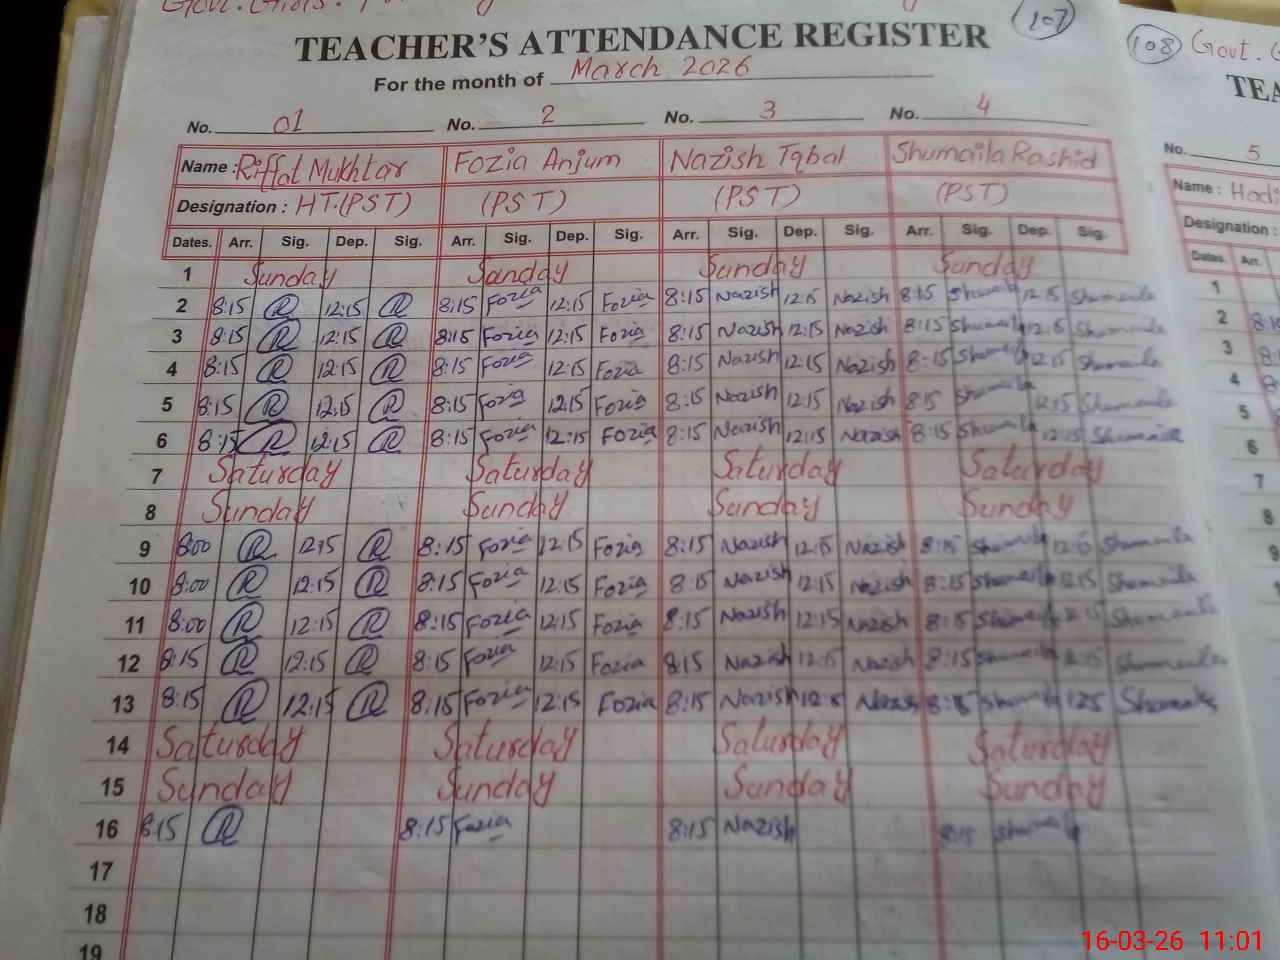 Govt. Girls.
107
TEACHER'S ATTENDANCE REGISTER
For the month of March 2026
No. 01 No. 2 No. 3 No. 4
Name : Riffat Mukhtar Fozia Anjum Nazish Iqbal Shumaila Rashid
Designation : HT.(PST) (PST) (PST) (PST)
Dates. Arr. Sig. Dep. Sig. Arr. Sig. Dep. Sig. Arr. Sig. Dep. Sig. Arr. Sig. Dep. Sig.
1 Sunday Sunday Sunday Sunday
2 8:15 R 12:15 R 8:15 Fozia 12:15 Fozia 8:15 Nazish 12:15 Nazish 8:15 Shumaila 12:15 Shumaila
3 8:15 R 12:15 R 8:15 Fozia 12:15 Fozia 8:15 Nazish 12:15 Nazish 8:15 Shumaila 12:15 Shumaila
4 8:15 R 12:15 R 8:15 Fozia 12:15 Fozia 8:15 Nazish 12:15 Nazish 8:15 Shumaila 12:15 Shumaila
5 8:15 R 12:15 R 8:15 Fozia 12:15 Fozia 8:15 Nazish 12:15 Nazish 8:15 Shumaila 12:15 Shumaila
6 8:15 R 12:15 R 8:15 Fozia 12:15 Fozia 8:15 Nazish 12:15 Nazish 8:15 Shumaila 12:15 Shumaila
7 Saturday Saturday Saturday Saturday
8 Sunday Sunday Sunday Sunday
9 8:00 R 12:15 R 8:15 Fozia 12:15 Fozia 8:15 Nazish 12:15 Nazish 8:15 Shumaila 12:15 Shumaila
10 8:00 R 12:15 R 8:15 Fozia 12:15 Fozia 8:15 Nazish 12:15 Nazish 8:15 Shumaila 12:15 Shumaila
11 8:00 R 12:15 R 8:15 Fozia 12:15 Fozia 8:15 Nazish 12:15 Nazish 8:15 Shumaila 12:15 Shumaila
12 8:15 R 12:15 R 8:15 Fozia 12:15 Fozia 8:15 Nazish 12:15 Nazish 8:15 Shumaila 12:15 Shumaila
13 8:15 R 12:15 R 8:15 Fozia 12:15 Fozia 8:15 Nazish 12:15 Nazish 8:15 Shumaila 12:15 Shumaila
14 Saturday Saturday Saturday Saturday
15 Sunday Sunday Sunday Sunday
16 8:15 R 8:15 Fozia 8:15 Nazish 8:15 Shumaila
17
18
19
108 Govt. G
TEA
No. 5
Name : Hadi
Designation :
Dates. Arr.
1
2 8:1
3 8:
4 8
5
6
7
8
9
16-03-26 11:01